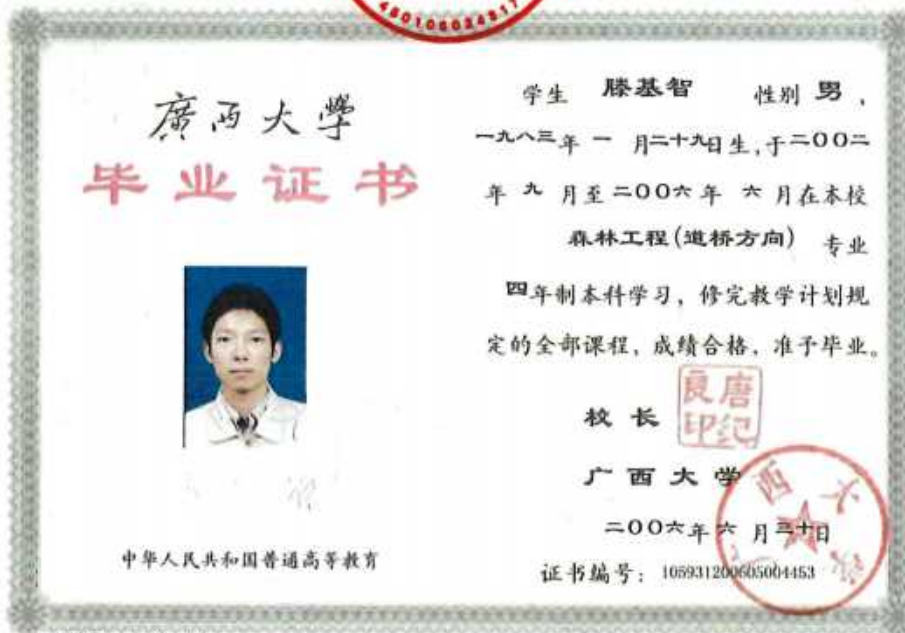 450106024317
廣西大學
毕业证书
中华人民共和国普通高等教育
学生 滕基智 性别 男，
一九八三年 一 月二十九日生，于二00二
年 九 月至二00六年 六 月在本校
森林工程(道桥方向) 专业
四年制本科学习，修完教学计划规
定的全部课程，成绩合格，准予毕业。
校 长 唐纪良印
广 西 大 学
二00六年六 月三十日
证书编号：105931200605004453
西大